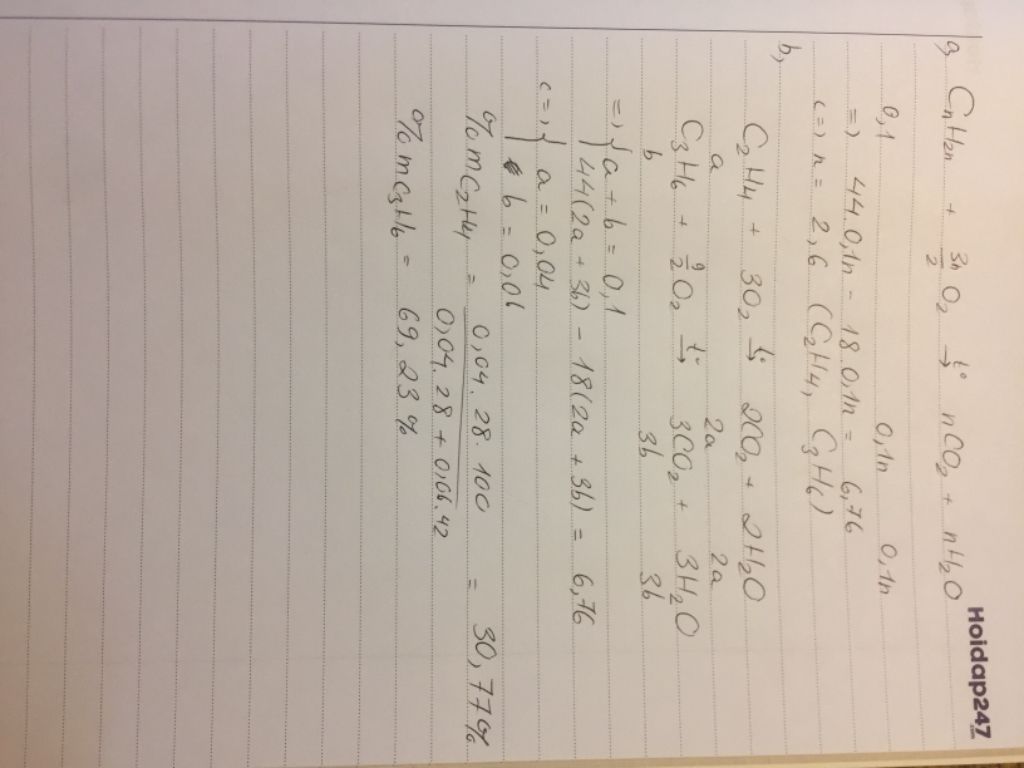 Hoidap247
a, CnH2n + 3n/2 O2 →t° nCO2 + nH2O
0,1 0,1n 0,1n
=> 44.0,1n - 18.0,1n = 6,76
<=> n = 2,6 (C2H4, C3H6)
b,
C2H4 + 3O2 →t° 2CO2 + 2H2O
a 2a 2a
C3H6 + 9/2 O2 →t° 3CO2 + 3H2O
b 3b 3b
=> { a + b = 0,1
44(2a + 3b) - 18(2a + 3b) = 6,76
<=> { a = 0,04
b = 0,06
%mC2H4 = 0,04.28.100 / 0,04.28 + 0,06.42 = 30,77%
%mC3H6 = 69,23%